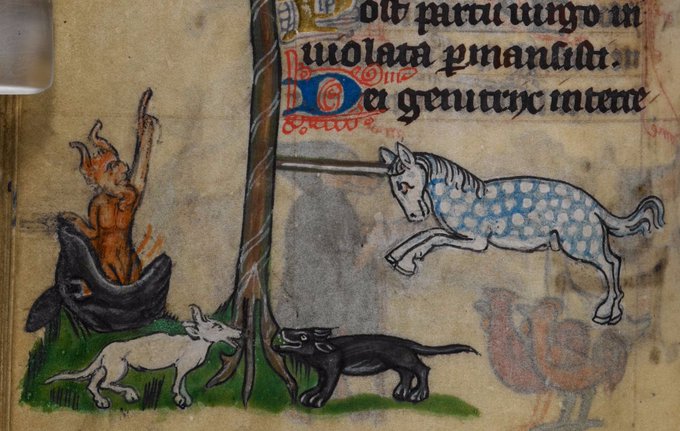 ost partu uirgo in
uiolata ꝑmansisti.
Dei genitryc interce